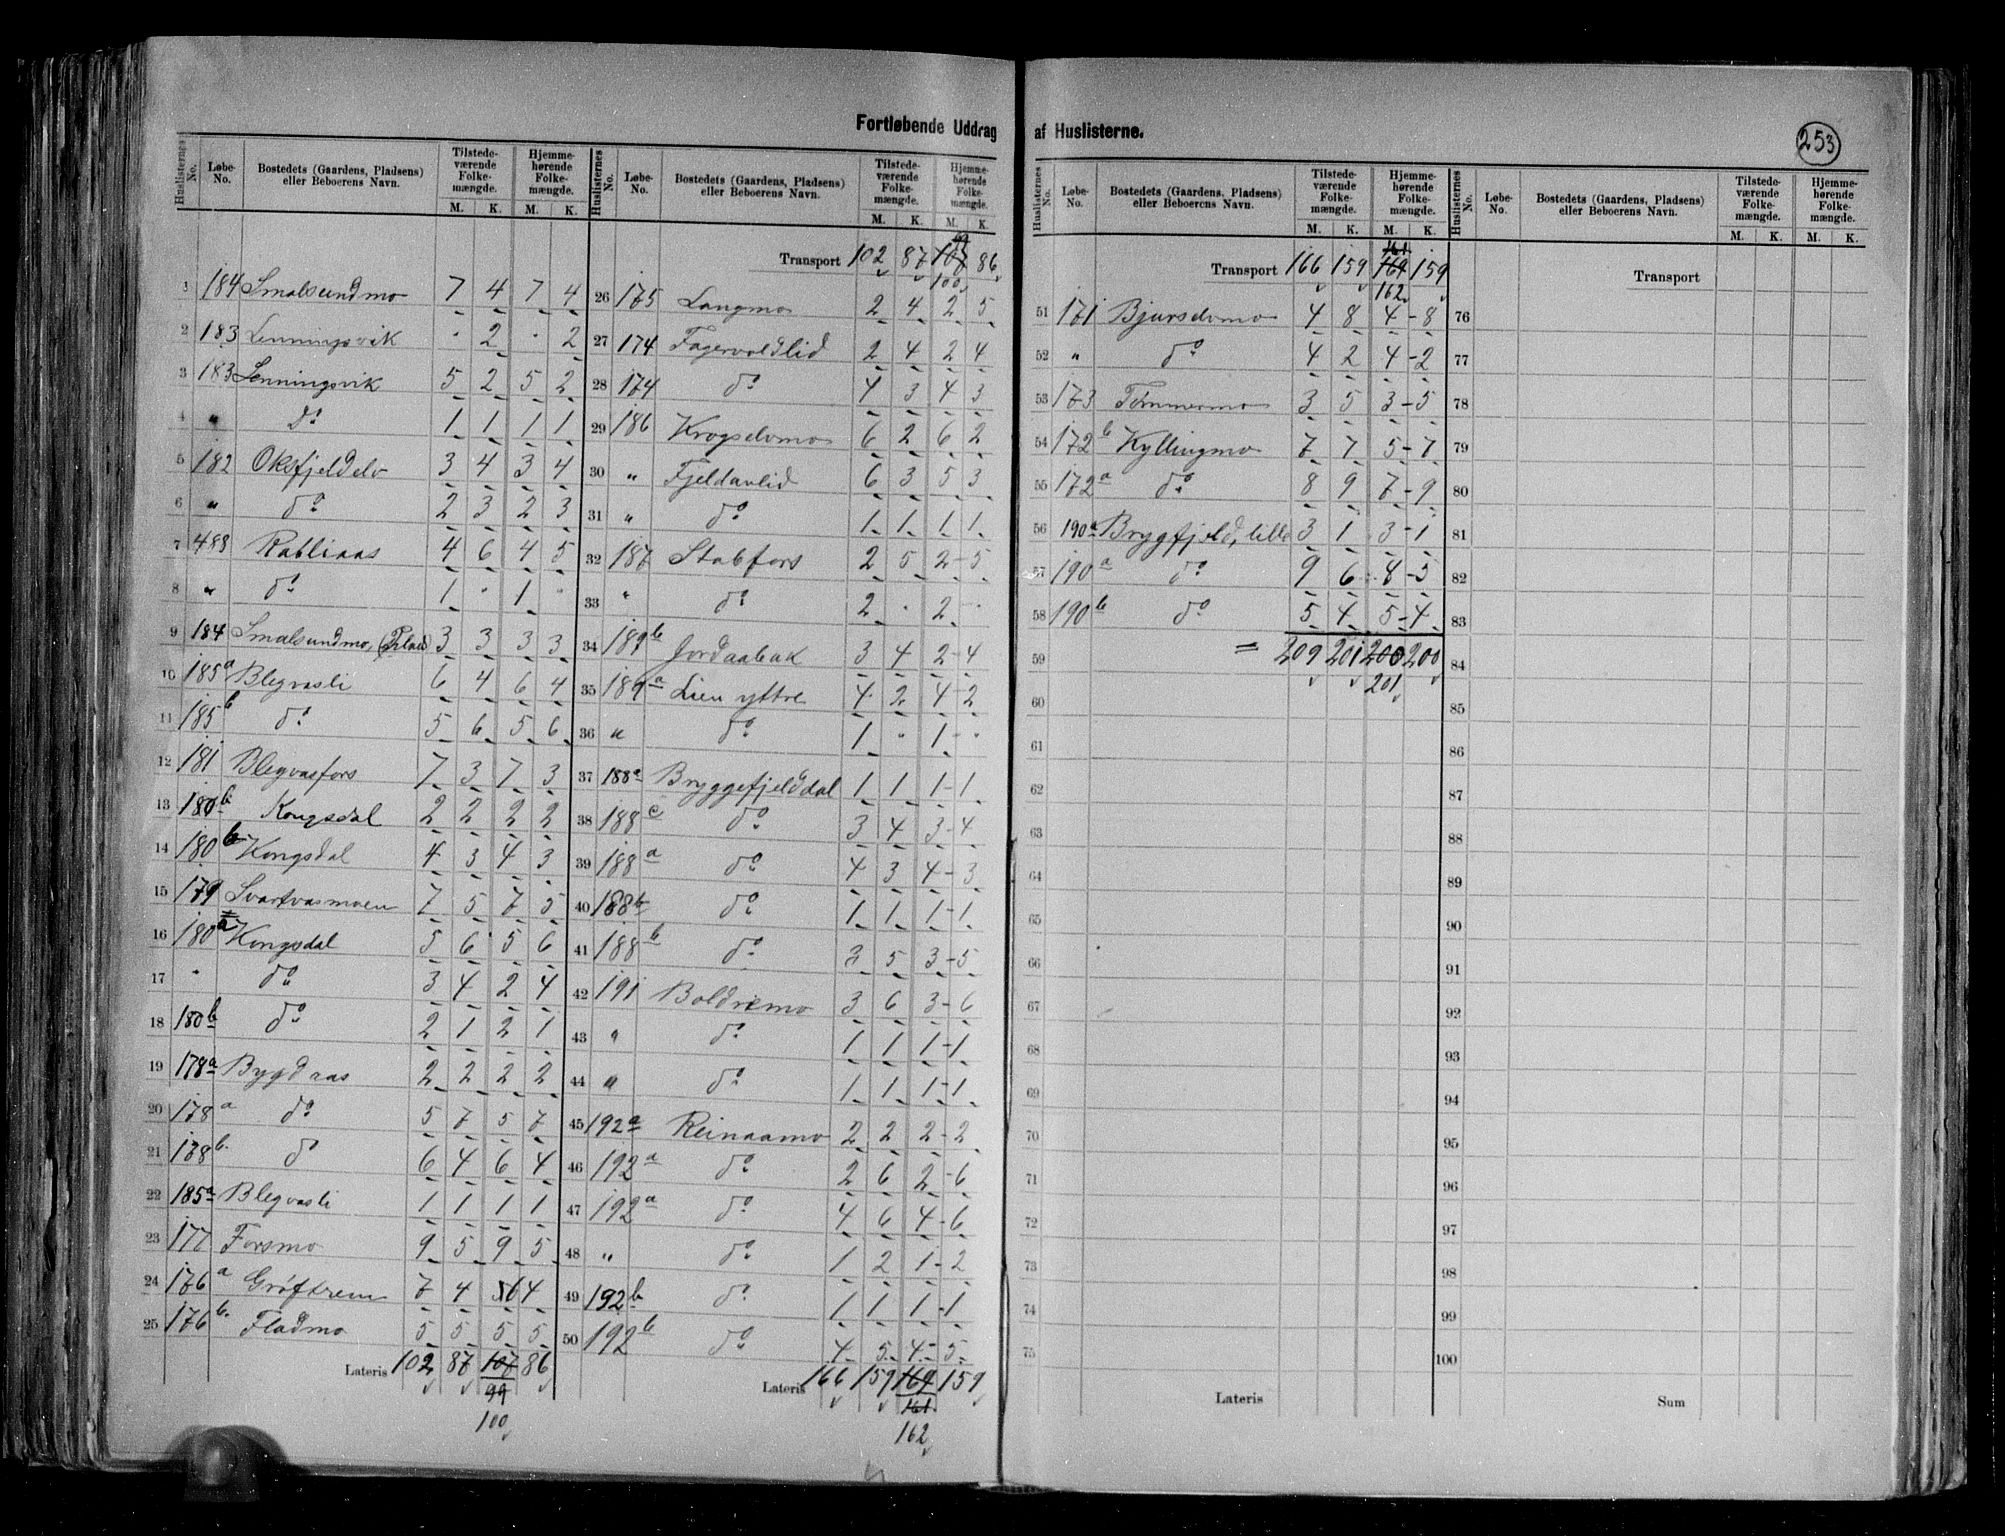 Fortløbende Uddrag af Huslisterne.
253
Huslisternes No. Løbe-No. Bostedets (Gaardens, Pladsens) eller Beboerens Navn. Tilstedeværende Folkemængde. M. K. Hjemmehørende Folkemængde. M. K.
1 184 Smalsundmo 7 4 7 4
2 183 Lenningsvik " 2 " 2
3 183 Lenningsvik 5 2 5 2
4 " do 1 1 1 1
5 182 Oksfjeldelv 3 4 3 4
6 " do 2 3 2 3
7 183 Rabliaas 4 6 4 5
8 " do 1 " 1 "
9 184 Smalsundmo, (Plads) 3 3 3 3
10 185a Blegvasli 6 4 6 4
11 185b do 5 6 5 6
12 181 Blegvasfors 7 3 7 3
13 180b Kongsdal 2 2 2 2
14 180b Kongsdal 4 3 4 3
15 179 Svartvasmoen 7 5 7 5
16 180a Kongsdal 5 6 5 6
17 " do 3 4 2 4
18 180b do 2 1 2 1
19 178a Bygdaas 2 2 2 2
20 178a do 5 7 5 7
21 178b. do 6 4 6 4
22 185a Blegvasli 1 1 1 1
23 177 Forsmo 9 5 9 5
24 176a Grøftrem 7 4 6 4
25 176b. Fladmo 5 5 5 5
Lateris 102 87 107 86
99
100
Huslisternes No. Løbe-No. Bostedets (Gaardens, Pladsens) eller Beboerens Navn. Tilstedeværende Folkemængde. M. K. Hjemmehørende Folkemængde. M. K.
99
Transport 102 87 107 86
100
26 175 Langmo 2 4 2 5
27 174 Fagervoldlid 2 4 2 4
28 174 do 4 3 4 3
29 186 Krogselvmo 6 2 6 2
30 " Fjeldavlid 6 3 5 3
31 " do 1 1 1 1
32 187 Stabfors 2 5 2-5
33 " do 2 " 2-"
34 189b Jordaabak 3 4 2-4
35 189a Lien yttre 4 2 4-2
36 " do 1 " 1-"
37 188a Bryggefjelddal 1 1 1-1
38 188c do 3 4 3-4
39 188a do 4 3 4-3
40 188b do 1 1 1-1
41 188b do 3 5 3-5
42 191 Boldremo 3 6 3-6
43 " do 1 1 1-1
44 " do 1 1 1-1
45 192a Reinaamo 2 2 2-2
46 192a do 2 6 2-6
47 192a do 4 6 4-6
48 " do 1 2 1-2
49 192b do 1 1 1-1
50 192b do 4 5 4-5
Lateris 166 159 169 159
161
162
Huslisternes No. Løbe-No. Bostedets (Gaardens, Pladsens) eller Beboerens Navn. Tilstedeværende Folkemængde. M. K. Hjemmehørende Folkemængde. M. K.
161
Transport 166 159 169 159
162
51 171 Bjurselvmo 4 8 4-8
52 " do 4 2 4-2
53 173 Tømmermo 3 5 3-5
54 172b Kyllingmo 7 7 5-7
55 172a do 8 9 7-9
56 190a Brygfjeld, lille 3 1 3-1
57 190a do 9 6 8-5
58 190b do 5 4 5-4
59 = 209 201 200 200
201
60
61
62
63
64
65
66
67
68
69
70
71
72
73
74
75
Lateris
Huslisternes No. Løbe-No. Bostedets (Gaardens, Pladsens) eller Beboerens Navn. Tilstedeværende Folkemængde. M. K. Hjemmehørende Folkemængde. M. K.
Transport
76
77
78
79
80
81
82
83
84
85
86
87
88
89
90
91
92
93
94
95
96
97
98
99
100
Sum